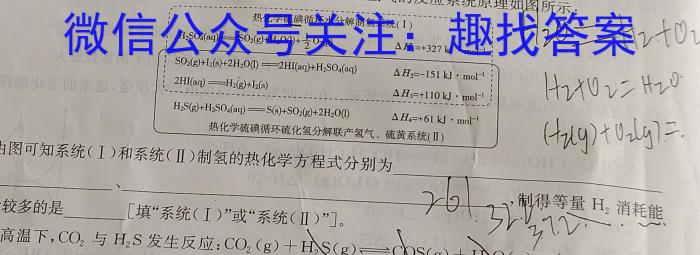 的反应系统原理如图所示。
微信公众号关注：趣找答案
热化学硫碘循环水分解制氢系统(Ⅰ)
H₂SO₄(aq)══SO₂(g)+H₂O(l)+½O₂(g) ΔH₁=+327 kJ·mol⁻¹
SO₂(g)+I₂(s)+2H₂O(l)══2HI(aq)+H₂SO₄(aq) ΔH₂=-151 kJ·mol⁻¹
2HI(aq)══H₂(g)+I₂(s) ΔH₃=+110 kJ·mol⁻¹
H₂S(g)+H₂SO₄(aq)══S(s)+SO₂(g)+2H₂O(l) ΔH₄=+61 kJ·mol⁻¹
热化学硫碘循环硫化氢分解联产氢气、硫黄系统(Ⅱ)
H₂+O₂=H₂O
(H₂(g)+O₂(g)=
由图可知系统(Ⅰ)和系统(Ⅱ)制氢的热化学方程式分别为
、 ，制得等量 H₂ 消耗能
20
较多的是 [填“系统(Ⅰ)”或“系统(Ⅱ)”]。
高温下,CO₂ 与 H₂S 发生反应:CO₂(g)+H₂S(g)⇌COS(g)+H₂O